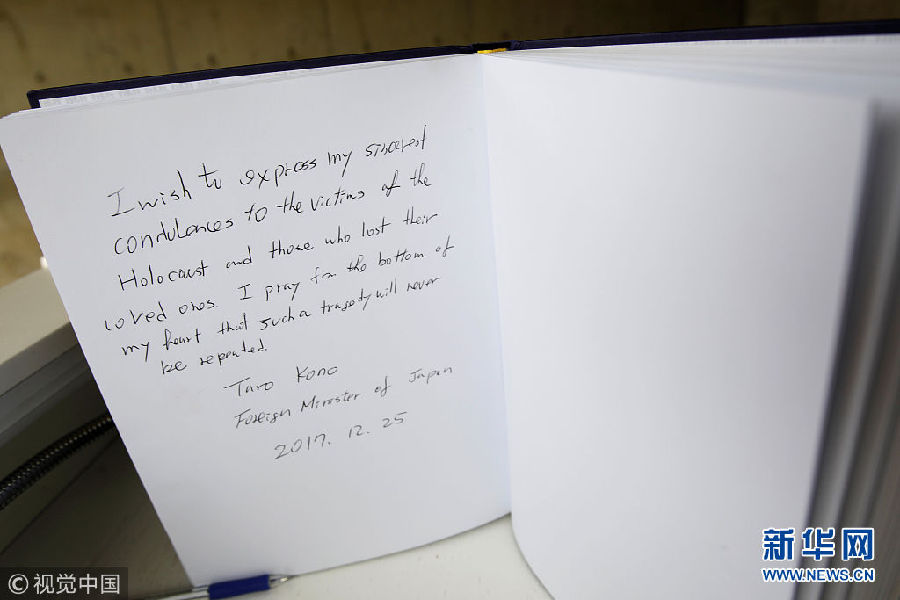 I wish to express my sincerest
condolences to the victims of the
Holocaust and those who lost their
loved ones. I pray from the bottom of
my heart that such a tragedy will never
be repeated.
Taro Kono
Foreign Minister of Japan
2017. 12. 25
新华网
WWW.NEWS.CN
©视觉中国